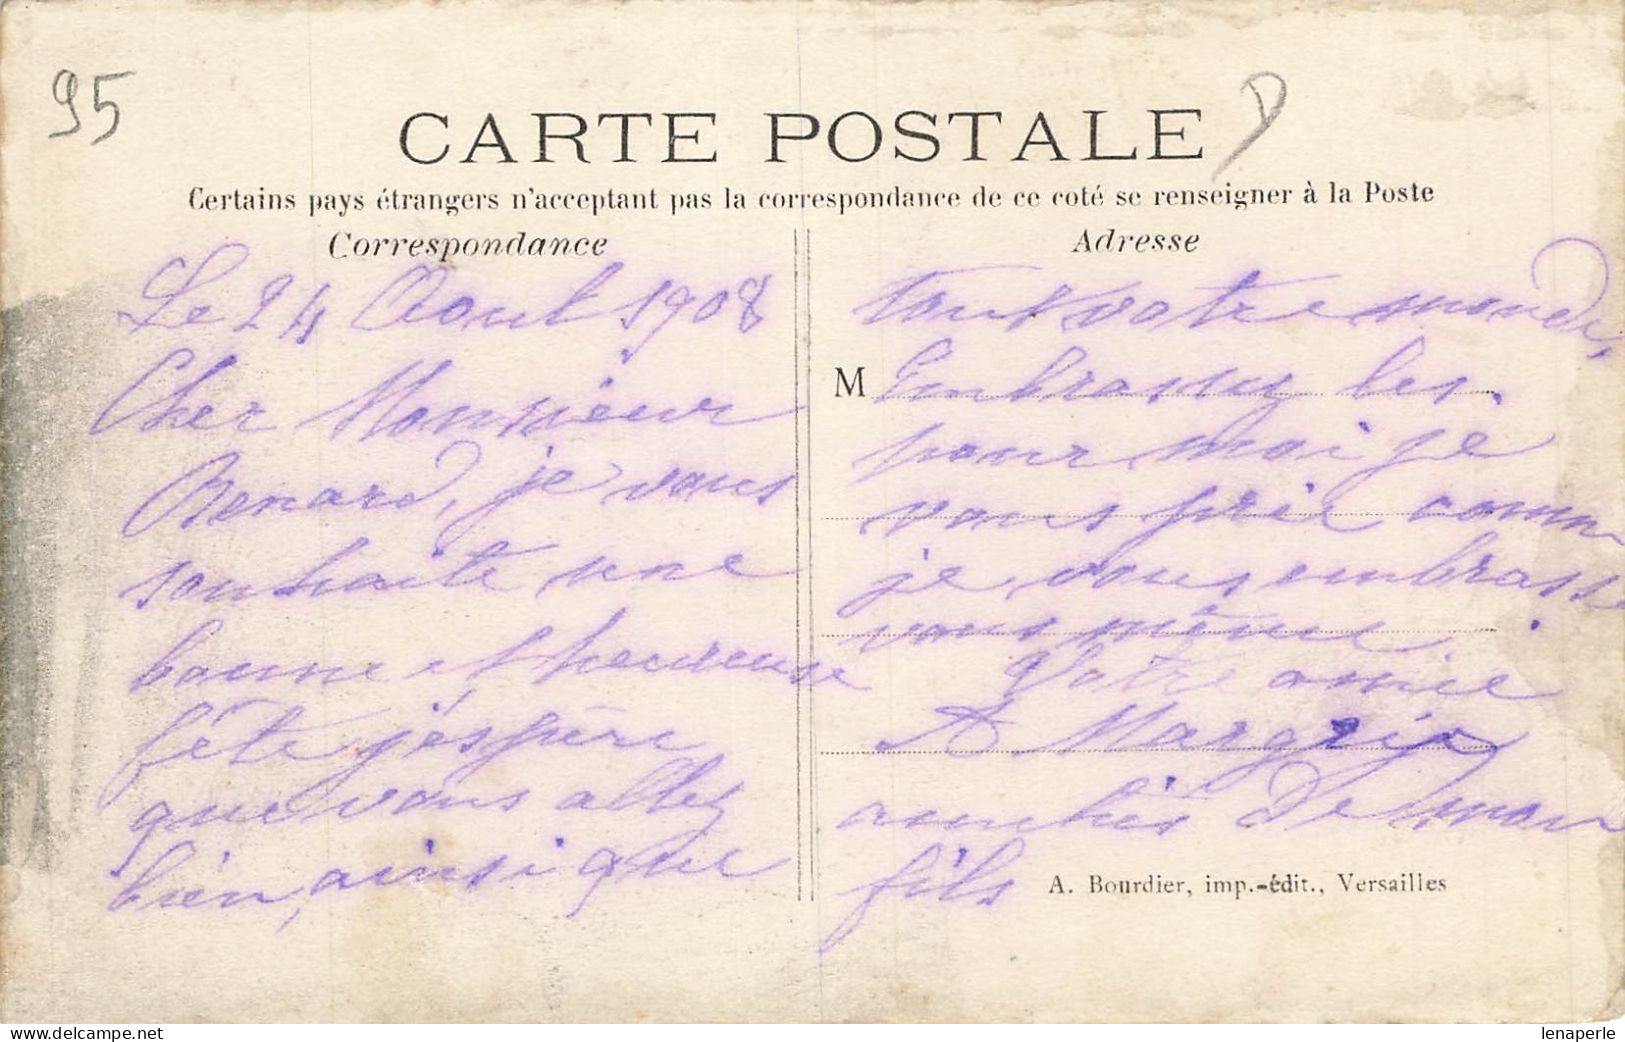 95
CARTE POSTALE
Certains pays étrangers n'acceptant pas la correspondance de ce coté se renseigner à la Poste
Correspondance
Le 24 Aout 1908
Cher Monsieur
Renard, je vous
souhaite une
bonne et heureuse
fête j'éspère
que vous allez
bien, ainsi que
Adresse
tout votre monde,
M Embrasser les
pour moi je
vous prie comm
je vous embrasse
vous même.
Votre amie
A Margrip
de mon
fils
A. Bourdier, imp.-édit., Versailles
delcampe.net
lenaperle